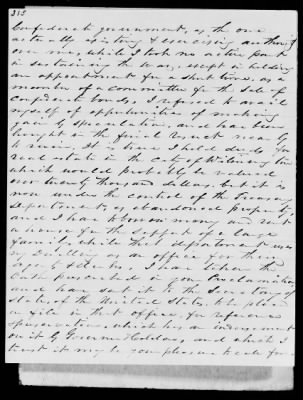 313
Confederate government, as the one
actually existing & exercising authority
over me, while I took no active part
in sustaining the war, except in holding
an appointment for a short time, as a
member of a committee for the sale of
confederate bonds. I refused to avail
myself of opportunities of making
gain by speculation, and have been
brought in the final result nearly
to ruin. It is true I hold deeds for
real estate in the city of Wilmington
which would probably be valued
over twenty thousand dollars, but it is
now under the control of the Treasury
department, as abandoned property,
and I have to borrow money to
a house for the support of a large
family, while that department uses
my dwelling as an office for their
I have taken the
oath prescribed by your Proclamation
and have sent it to the Secretary of
State of the United States, to be placed
on file in that office, for reference
preservation, which has an indorsement
on it by Governor Holden, and which I
trust it may be your pleasure to call for